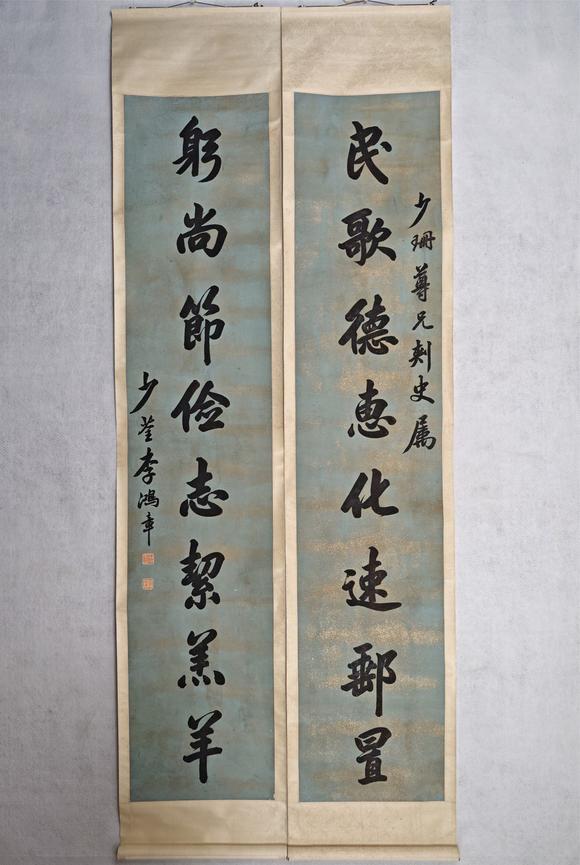 少珊尊兄刺史属
民歌德惠化速郵置
躬尚節儉志絜羔羊
少荃李鴻章